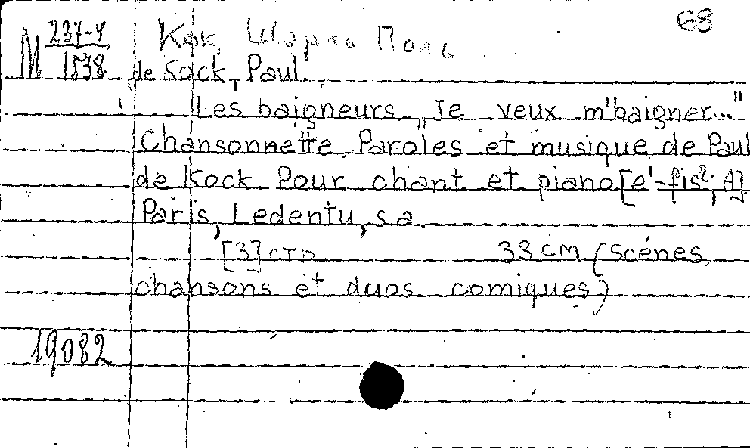 68
М 237-4/1538
Кок, Шарль Поль
de Kock, Paul
Les baigneurs „Je veux m'baigner..."
Chansonnette. Paroles et musique de Paul
de Kock Pour chant et piano [e'-fis²; A]
Paris, Ledentu, s.a.
[3] стр 33 cm (Scénes,
chansons et duos comiques)
19082